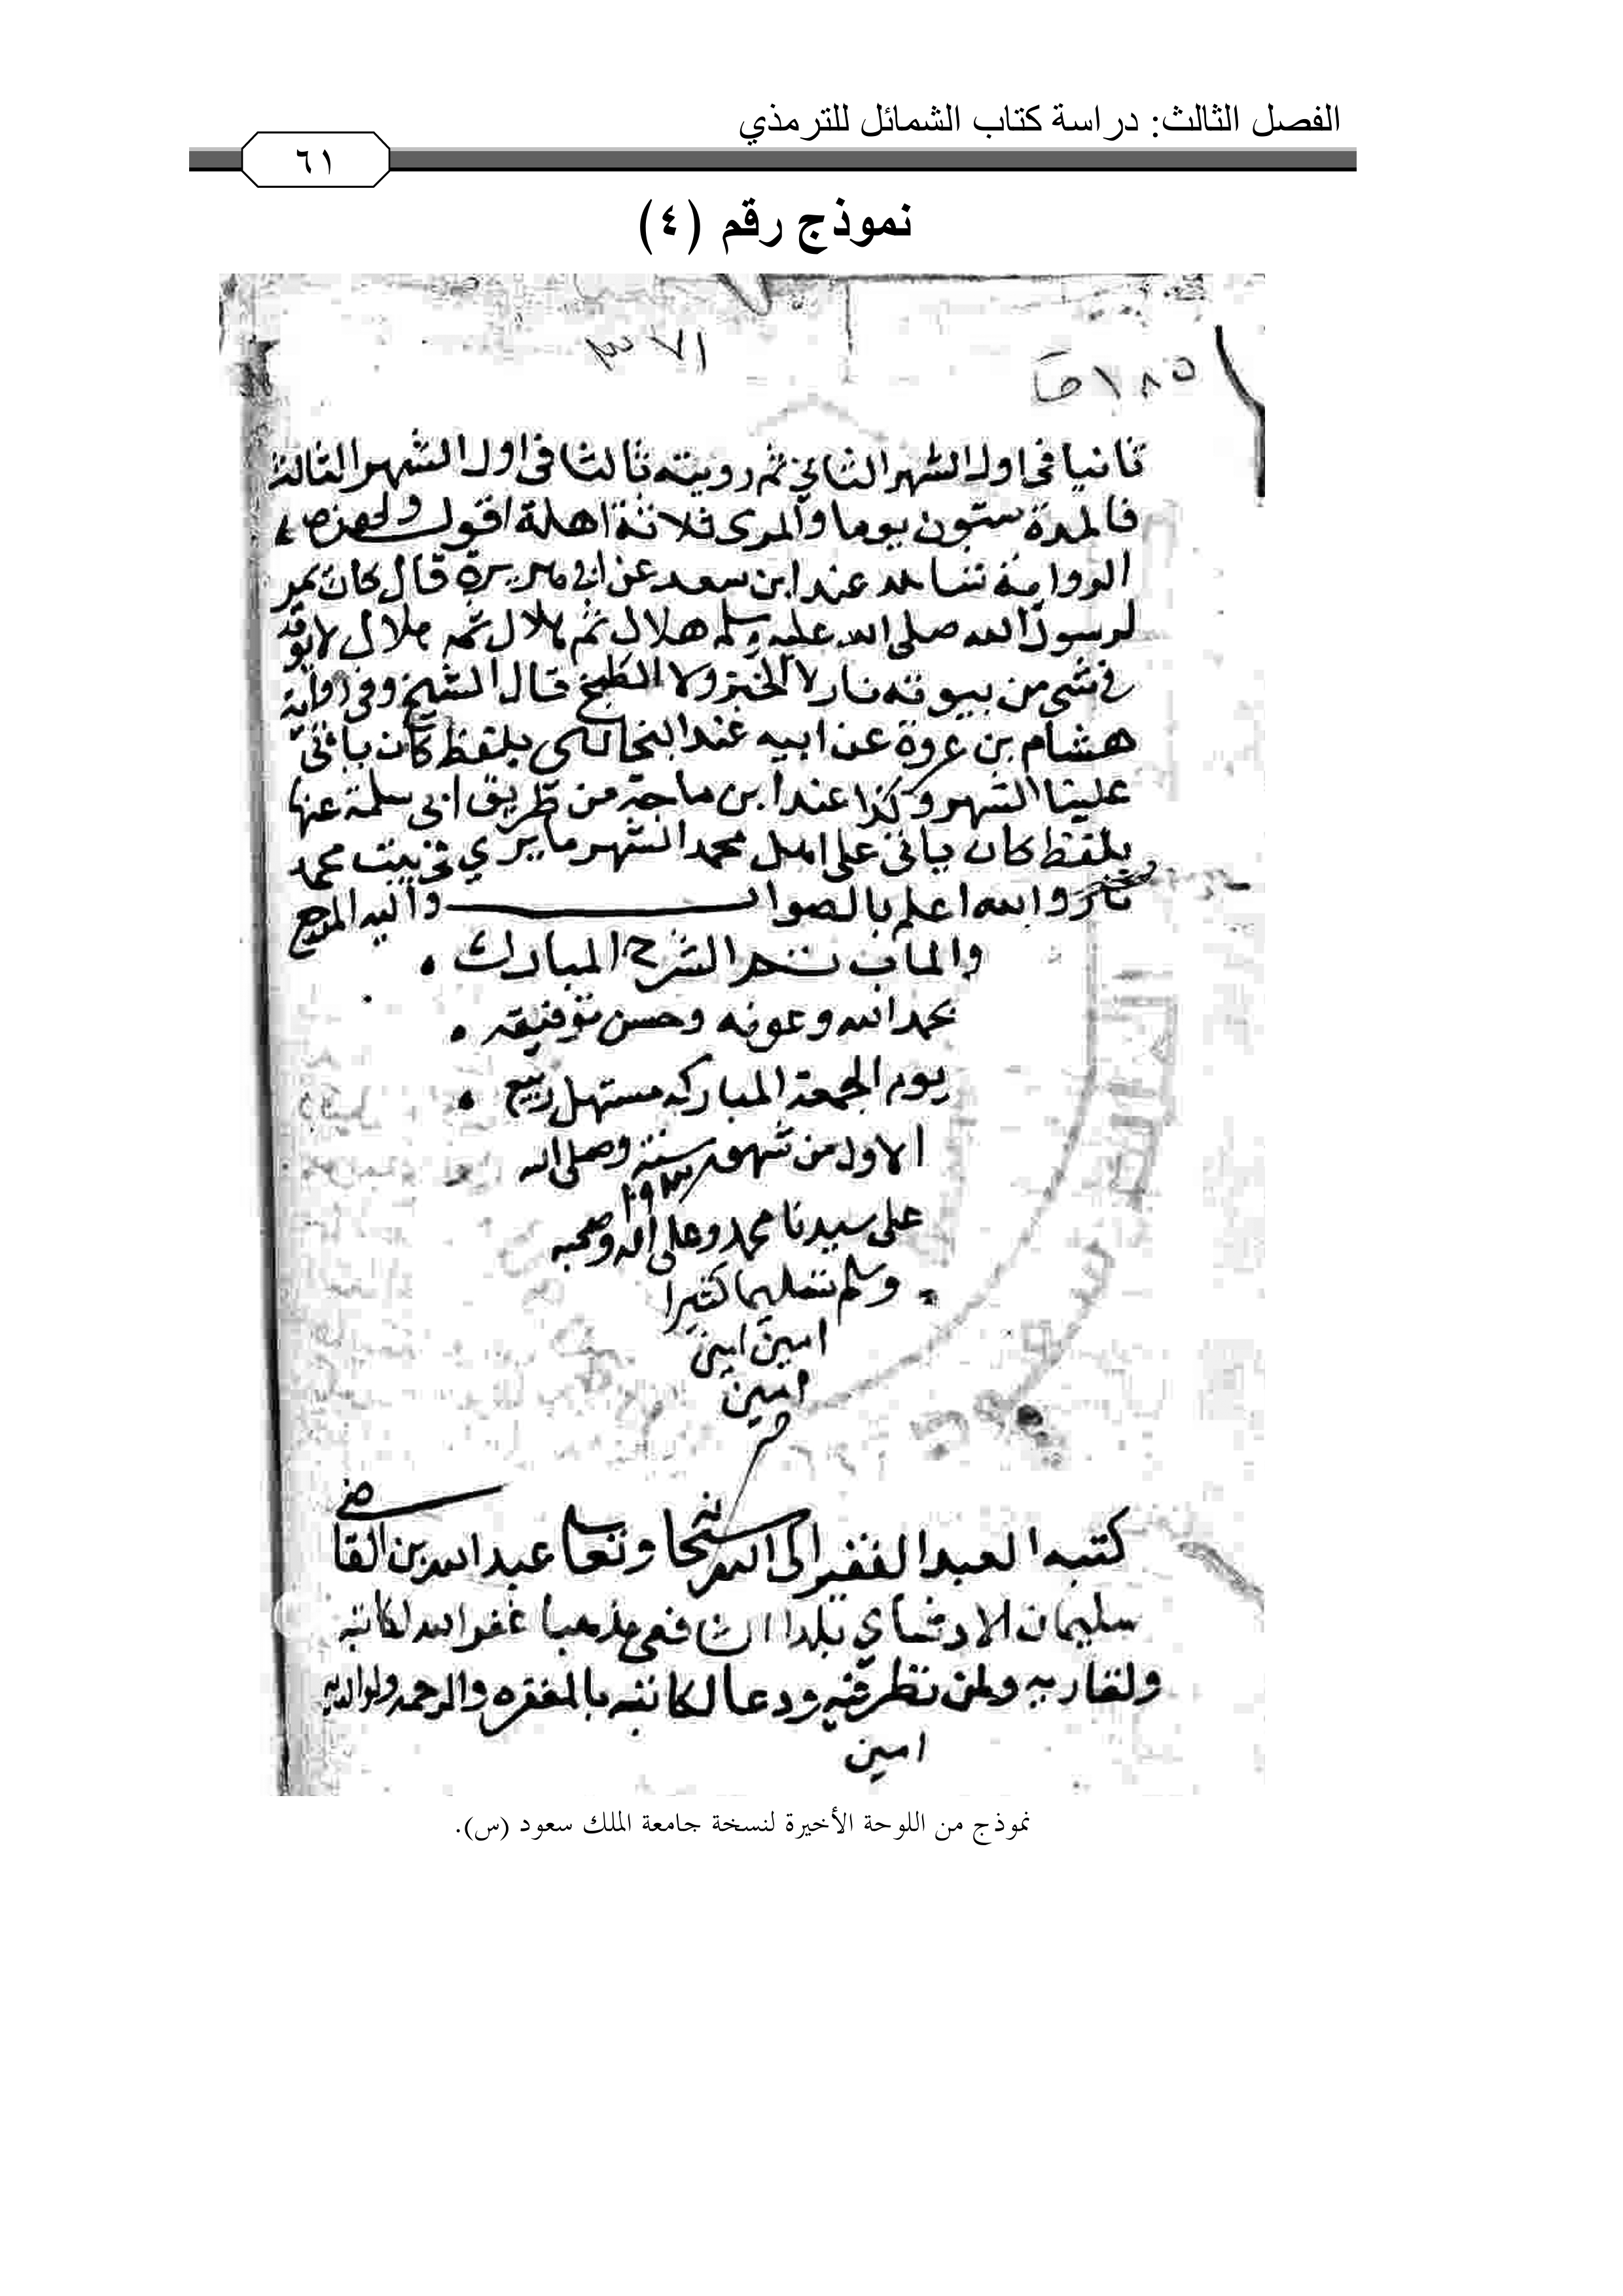 الفصل الثالث: دراسة كتاب الشمائل للترمذي
٦١
نموذج رقم (٤)
ثانيا في اول الشهر الثاني ثم رويته ثالثا في اول الشهر الثالث
فالمدة ستون يوما والمرى ثلاثة اهلة اقول ولهذه
الرواية شاهد عند ابن سعد عن ابي هريرة قال كان يمر
لرسول الله صلى الله عليه وسلم هلال ثم هلال ثم هلال لا يوقد
في شي من بيوته نار لا لخبز ولا لطبخ قال الشيخ وفي رواية
هشام بن عروة عن ابيه عند البخاري بلفظ كان ياتي
علينا الشهر وكذا عند ابن ماجة من طريق ابي سلمة عنها
بلفظ كان ياتي على اهل محمد الشهر ما يرى في بيت محمد
والله اعلم بالصواب واليه المرجع
والماب تم الشرح المبارك
بحمد الله وعونه وحسن توفيقه
يوم الجمعة المباركه مستهل ربيع
الاول من شهور سنة وصلى الله
على سيدنا محمد وعلى اله وصحبه
وسلم تسليما كثيرا
امين امين
امين
كتبه العبد الفقير الى الله سبحانه وتعالى عبد الله بن القاضي
سليمان بلدا الشافعي مذهبا غفر الله لكاتبه
ولقاريه ولمن نظر فيه ودعا لكاتبه بالمغفره والرحمه ولوالديه
امين
نموذج من اللوحة الأخيرة لنسخة جامعة الملك سعود (س).